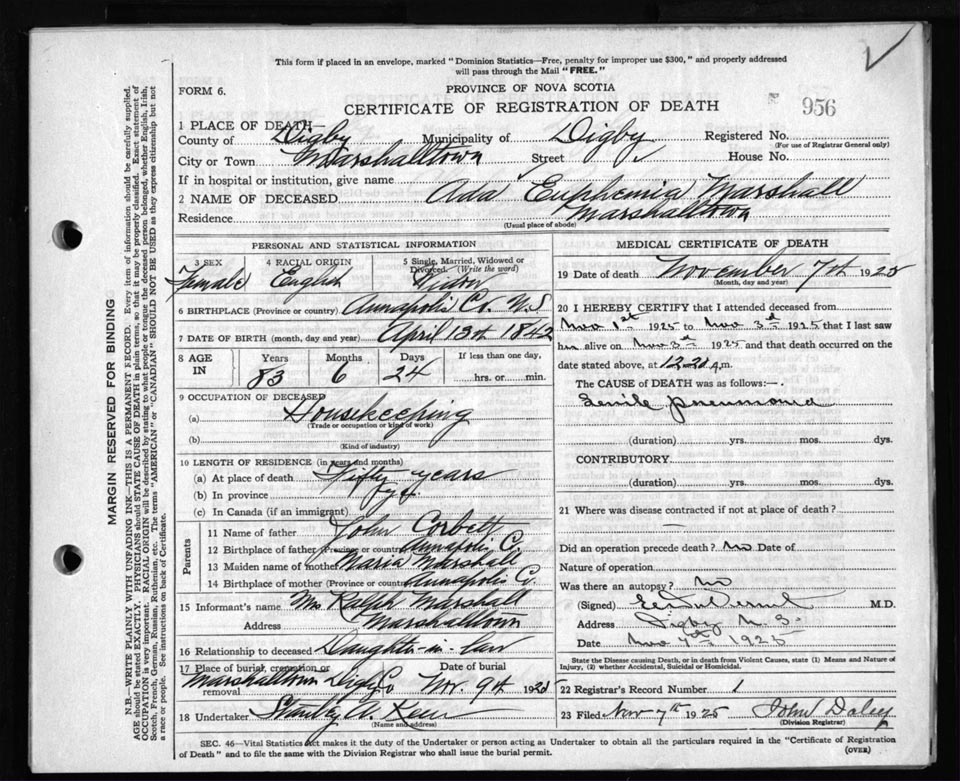 This form if placed in an envelope, marked "Dominion Statistics—Free, penalty for improper use $300," and properly addressed
will pass through the Mail "FREE."
FORM 6.
PROVINCE OF NOVA SCOTIA
CERTIFICATE OF REGISTRATION OF DEATH
956
1 PLACE OF DEATH—
County of Digby Municipality of Digby Registered No.
(For use of Registrar General only)
City or Town Marshalltown Street House No.
If in hospital or institution, give name
2 NAME OF DECEASED Ada Euphemia Marshall
Residence Marshalltown
(Usual place of abode)
PERSONAL AND STATISTICAL INFORMATION
3 SEX 4 RACIAL ORIGIN 5 Single, Married, Widowed or
Divorced. (Write the word)
Female English Widow
6 BIRTHPLACE (Province or country) Annapolis Co. N.S.
7 DATE OF BIRTH (month, day and year) April 13th 1842
8 AGE IN Years Months Days If less than one day,
83 6 24 hrs. or min.
9 OCCUPATION OF DECEASED
(a) Housekeeping
(Trade or occupation or kind of work)
(b)
(Kind of industry)
10 LENGTH OF RESIDENCE (in years and months)
(a) At place of death Fifty years
(b) In province
(c) In Canada (if an immigrant)
Parents
11 Name of father John Corbett
12 Birthplace of father (Province or country) Annapolis Co.
13 Maiden name of mother Maria Marshall
14 Birthplace of mother (Province or country) Annapolis Co.
15 Informant's name Mrs Ralph Marshall
Address Marshalltown
16 Relationship to deceased Daughter-in-law
17 Place of burial, cremation or removal Date of burial
Marshalltown Digby Co Nov. 9th 1925
18 Undertaker Stanley A.
(Name and address)
MEDICAL CERTIFICATE OF DEATH
19 Date of death November 7th 1925
(Month, day and year)
20 I HEREBY CERTIFY that I attended deceased from
Nov 1st 1925 to Nov 3rd 1925 that I last saw
alive on Nov 3rd 1925 and that death occurred on the
date stated above, at m.
The CAUSE of DEATH was as follows:—
Senile pneumonia
(duration) yrs. mos. dys.
CONTRIBUTORY
(duration) yrs. mos. dys.
21 Where was disease contracted if not at place of death?
Did an operation precede death? no Date of
Nature of operation
Was there an autopsy? no
(Signed) M.D.
Address Digby N.S.
Date Nov 7th 1925
State the Disease causing Death, or in death from Violent Causes, state (1) Means and Nature of
Injury, (2) whether Accidental, Suicidal or Homicidal.
22 Registrar's Record Number 1
23 Filed Nov 7th 1925 John Daley
(Division Registrar)
SEC. 46—Vital Statistics Act makes it the duty of the Undertaker or person acting as Undertaker to obtain all the particulars required in the "Certificate of Registration
of Death" and to file the same with the Division Registrar who shall issue the burial permit.
(OVER)
MARGIN RESERVED FOR BINDING
N.B.—WRITE PLAINLY WITH UNFADING INK—THIS IS A PERMANENT RECORD. Every item of information should be carefully supplied.
AGE should be stated EXACTLY. PHYSICIANS should STATE CAUSE OF DEATH in plain terms, so that it may be properly classified. Exact statement of
OCCUPATION is very important. RACIAL ORIGIN will be described by stating to what people or tongue the deceased person belonged, whether English, Irish,
Scotch, French, German, Russian, Ruthenian, etc. The terms "AMERICAN" or "CANADIAN" SHOULD NOT BE USED as they express citizenship but not
a race or people. See instructions on back of Certificate.